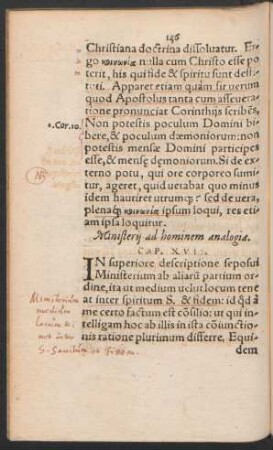 146
Christiana doctrina dissoluatur. Er-
go κοινωνία nulla cum Christo esse po
terit, his qui fide & spiritu sunt desti
tuti. Apparet etiam quàm sit verum
quod Apostolus tanta cum asseuera
tione pronunciat Corinthijs scribēs,
1. Cor. 10.
Non potestis poculum Domini bi
bere, & poculum dæmoniorum: non
potestis mensæ Domini participes
esse, & mensę dęmoniorum. Si de ex
terno potu, qui ore corporeo sumi
tur, ageret, quid uetabat quo minus
idem hauriret utrumq;? sed de uera,
plenaq; κοινωνία ipsum loqui, res eti
am ipsa loquitur.
Ministerij ad hominem analogia.
CAP. XVI.
IN superiore descriptione seposui
Ministerium ab aliarū partium or
dine, ita ut medium uelut locum tene
at inter spiritum S. & fidem: id q́; à
me certo factum est cōsilio: ut qui in-
telligam hoc ab illis in ista cōiunctio
nis ratione plurimum differre. Equi
dem
Ministerium
medium
locum te-
net inter
S. Sanctum et Fidem.